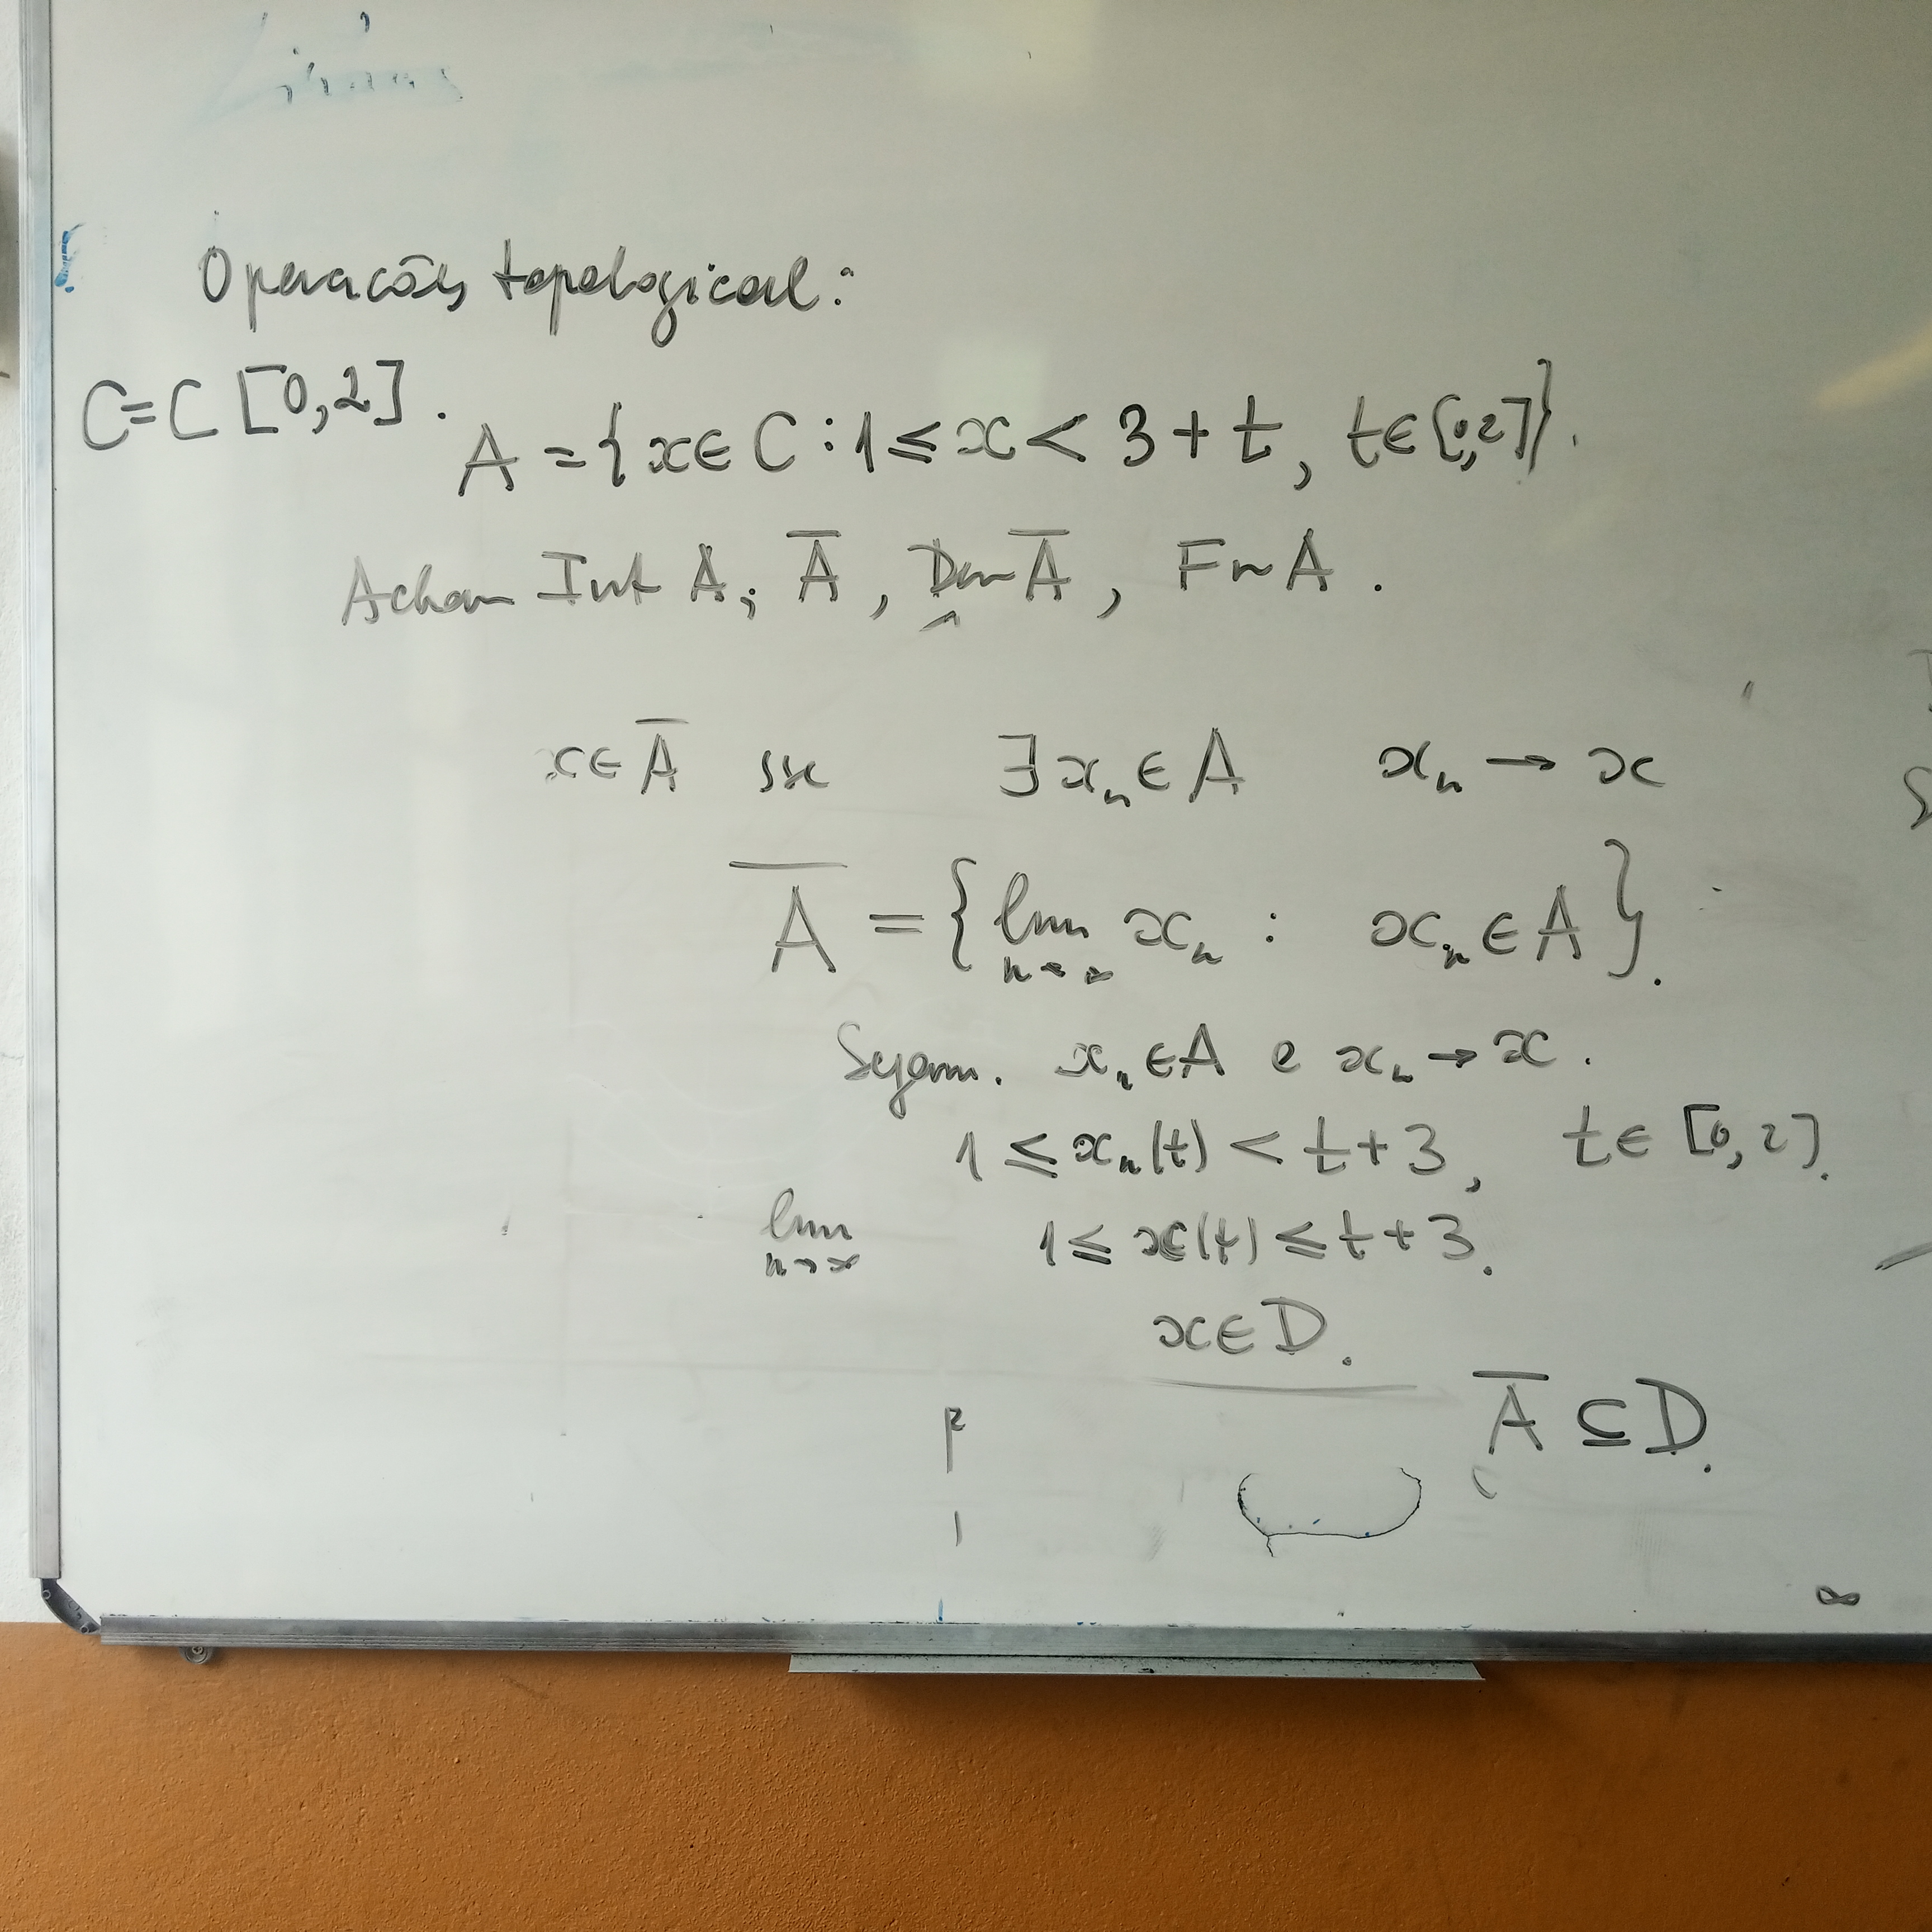 Operacões topological:
C=C[0,2].
A={x∈C:1≤x<3+t, t∈[0,2]}.
Achar Int A; A̅, Der A̅, Fr A.
x∈A̅ sse ∃xₙ∈A xₙ→x
A̅={lim xₙ: xₙ∈A}.
n→∞
Sejam. xₙ∈A e xₙ→x.
1≤xₙ(t)<t+3, t∈[0,2].
lim 1≤x(t)≤t+3.
n→∞
x∈D.
A̅⊆D.
∞